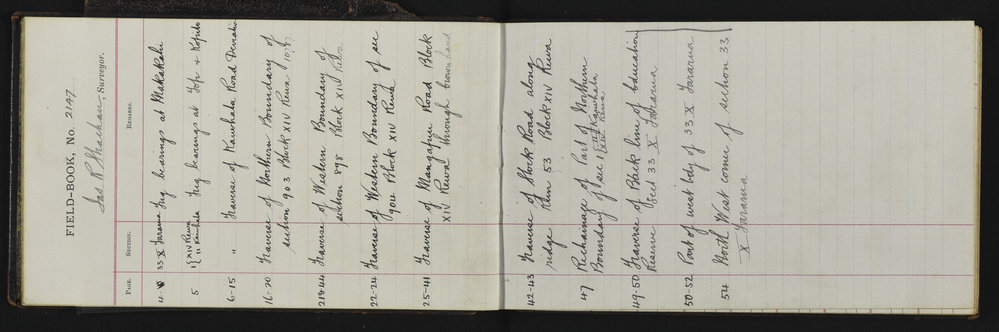 FIELD-BOOK, No. 2147
Jas R Strachan, Surveyor.
PAGE. SECTION. REMARKS.
4 33 X Tararua Trig bearings at Makakahi
5 1 { XIV Rewa " Kaiwhata Trig bearings at Top &
6-15 " Traverse of Kaiwhata Road Deviation
16-20 Traverse of Northern Boundary of
section 903 Block XIV Rewa
21 & 44 Traverse of Western Boundary of
section 898 Block XIV Rewa
22-24 Traverse of Western Boundary of sec
904 Block XIV Rewa
25-41 Traverse of Mangapuri Road Block
XIV Rewa through Crown Land
42-43 Traverse of Stock Road along
ridge Run 53 Block XIV Rewa
47 Rechainage of Part of Northern
Boundary of sec 1 { Kaiwhata XIV Rewa
49-50 Traverse of Block line of Education
Reserve Sect 33 X Tararua
50-52 Part of west bdy of 33 X Tararua
54 North West corner of section 33
X Tararua